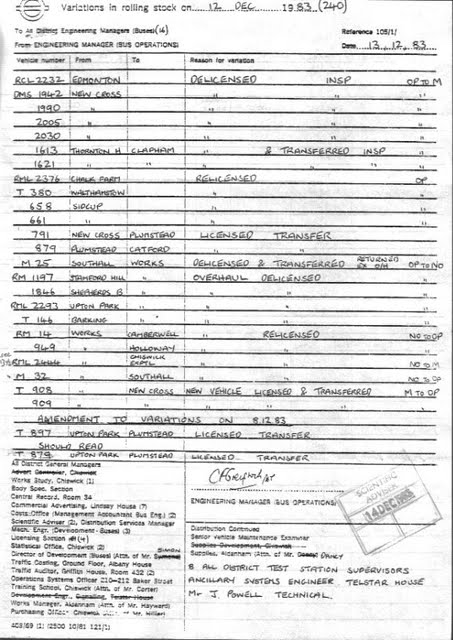 Variations in rolling stock on 12 DEC 1983 (240)
To All District Engineering Managers (Buses) (16) Reference 105/1/
From ENGINEERING MANAGER (BUS OPERATIONS) Date 13.12.83
Vehicle number From To Reason for variation
RCL 2232 EDMONTON DELICENSED INSP OP TO M
DMS 1942 NEW CROSS " " "
1990 " " " "
2005 " " " "
2030 " " " "
1613 THORNTON H CLAPHAM " & TRANSFERRED INSP "
1621 " " " " " "
RML 2376 CHALK FARM RELICENSED OP
T 380 WALTHAMSTOW " "
658 SIDCUP " "
661 " " "
791 NEW CROSS PLUMSTEAD LICENSED TRANSFER
879 PLUMSTEAD CATFORD " "
M 25 SOUTHALL WORKS DELICENSED & TRANSFERRED RETURNED EX O/H OP TO NO
RM 1197 STAMFORD HILL " OVERHAUL DELICENSED "
1846 SHEPHERDS B " " " "
RML 2293 UPTON PARK " " " "
T 146 BARKING " " " "
RM 14 WORKS CAMBERWELL " RELICENSED NO TO OP
949 " HOLLOWAY " " "
RML 2444 " CHISWICK EXPTL " " NO TO M
M 32 " SOUTHALL " " NO TO OP
T 908 " NEW CROSS NEW VEHICLE LICENSED & TRANSFERRED M TO OP
909 " " " " " "
AMENDMENT TO VARIATIONS ON 8.12.83
T 897 UPTON PARK PLUMSTEAD LICENSED TRANSFER
SHOULD READ
T 879 UPTON PARK PLUMSTEAD LICENSED TRANSFER
All District General Managers
Advert Controller, Chiswick
Works Study, Chiswick (1)
Body Spec. Section
Central Record, Room 34
Commercial Advertising, Lindsay House (7)
Costs Office (Management Accountant Bus Eng.) (2)
Scientific Adviser (2), Distribution Services Manager
Mech. Engr. (Development - Buses) (3)
Licensing Section (4)
Statistical Office, Chiswick (2)
Director of Development (Buses) (Attn. of Mr.
Traffic Costing, Ground Floor, Albany House
Traffic Auditor, Griffith House, Room 432 (2)
Operations Systems Officer 210-212 Baker Street
Training School, Chiswick (Attn. of Mr. Corter)
Development Eng., Signalling, Telstar House
Works Manager, Aldenham (Attn. of Mr. Hayward)
Purchasing Officer Chiswick (Attn. of Mr. Hillier)
ENGINEERING MANAGER (BUS OPERATIONS)
SCIENTIFIC
ADVISER
14 DEC 1983
Distribution Continued
Senior Vehicle Maintenance Examiner
Supplies Development, Chiswick
Supplies, Aldenham (Attn. of DANCY
8 ALL DISTRICT TEST STATION SUPERVISORS
ANCILLARY SYSTEMS ENGINEER TELSTAR HOUSE
Mr J. POWELL TECHNICAL.